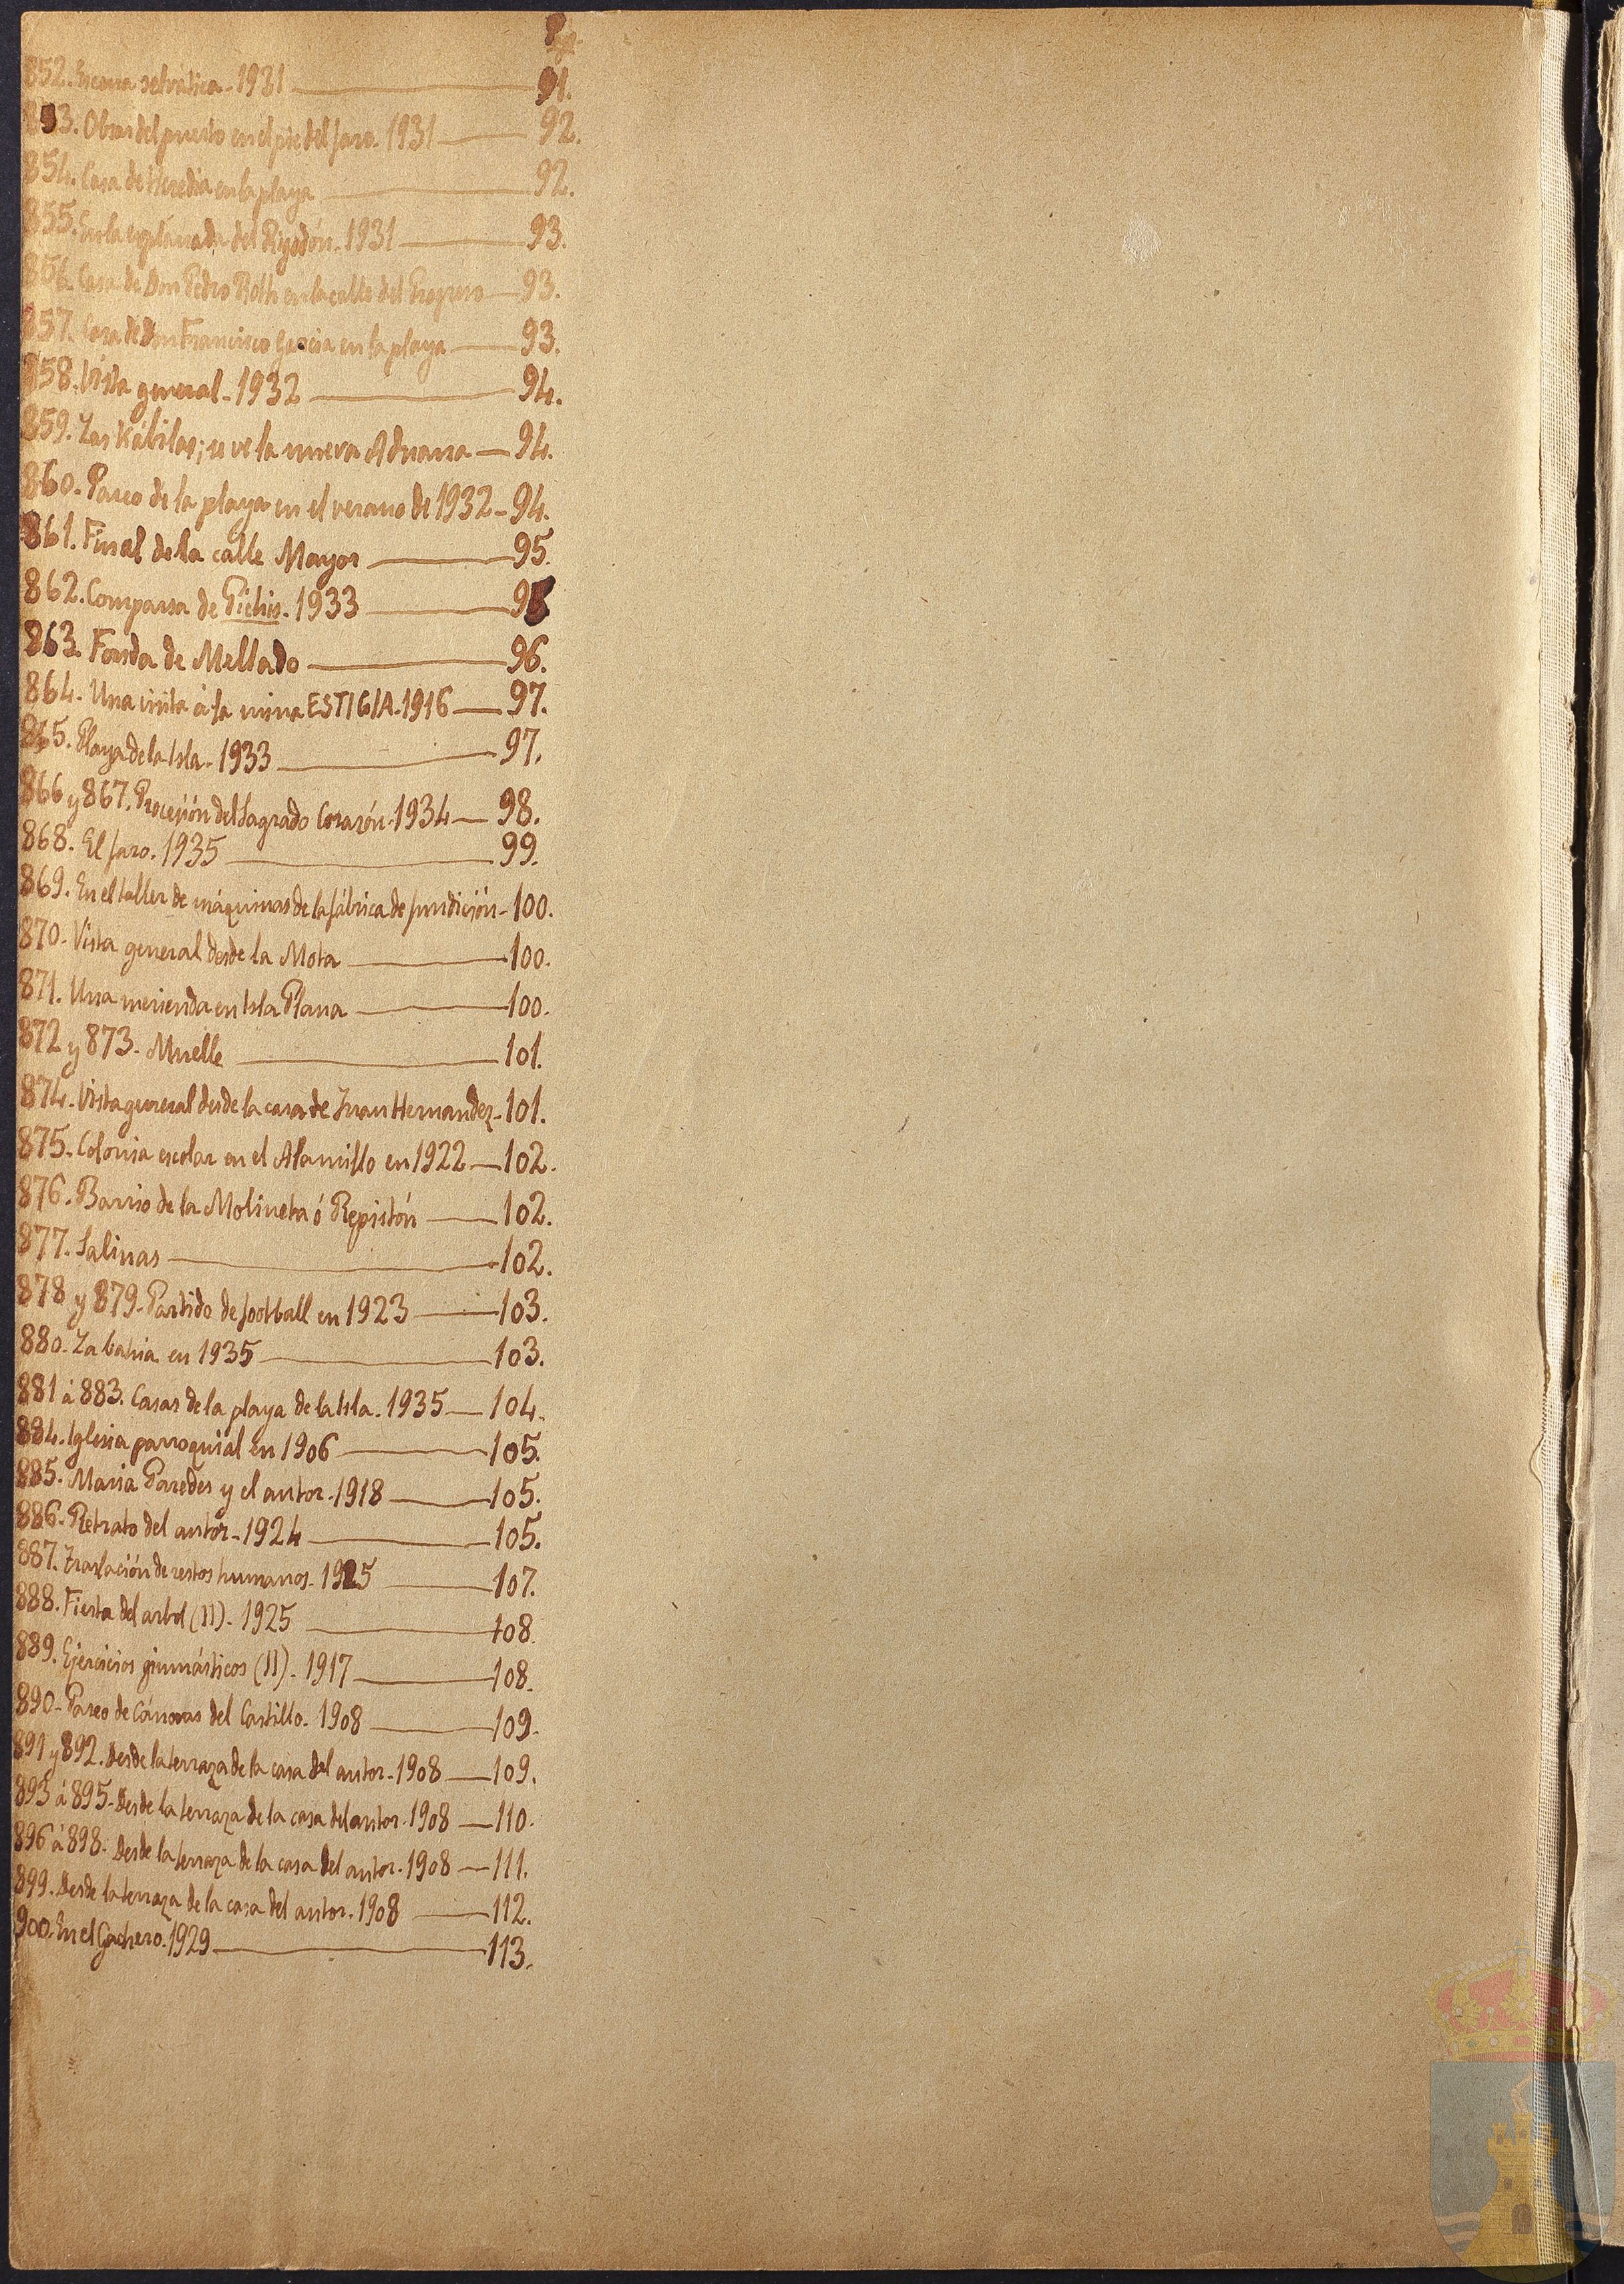 852. Escena selvática - 1931 — 91.
853. Obras del puerto en el pie del faro. 1931 — 92.
854. Casa de Heredia en la playa — 92.
855. En la explanada del Rigodón - 1931 — 93.
856. Casa de Don Pedro Roth en la calle del Progreso — 93.
857. Casa de Don Francisco García en la playa — 93.
858. Vista general - 1932 — 94.
859. Las Kábilas; se ve la nueva Aduana — 94.
860. Paseo de la playa en el verano de 1932 - 94.
861. Final de la calle Mayor — 95.
862. Comparsa de Pichis. 1933 — 95
863. Fonda de Mellado — 96.
864. Una visita á la mina ESTIGIA - 1916 — 97.
865. Playa de la Isla - 1933 — 97.
866 y 867. Procesión del Sagrado Corazón - 1934 — 98.
868. El faro. 1935 — 99.
869. En el taller de máquinas de la fábrica de fundición - 100.
870. Vista general desde la Mota — 100.
871. Una merienda en Isla Plana — 100.
872 y 873. Muelle — 101.
874. Vista general desde la casa de Juan Hernandez - 101.
875. Colonia escolar en el Alamillo en 1922 — 102.
876. Barrio de la Molineta ó Repistón — 102.
877. Salinas — 102.
878 y 879. Partido de football en 1923 — 103.
880. La bahia en 1935 — 103.
881 á 883. Casas de la playa de la Isla. 1935 — 104.
884. Iglesia parroquial en 1906 — 105.
885. Maria Paredes y el autor - 1918 — 105.
886. Retrato del autor - 1924 — 105.
887. Traslación de restos humanos. 1925 — 107.
888. Fiesta del arbol (II) - 1925 — 108.
889. Ejercicios gimnásticos (II) - 1917 — 108.
890. Paseo de Cánovas del Castillo. 1908 — 109.
891 y 892. Desde la terraza de la casa del autor - 1908 — 109.
893 á 895. Desde la terraza de la casa del autor - 1908 — 110.
896 á 898. Desde la terraza de la casa del autor - 1908 — 111.
899. Desde la terraza de la casa del autor. 1908 — 112.
900. En el Gachero. 1929 — 113.